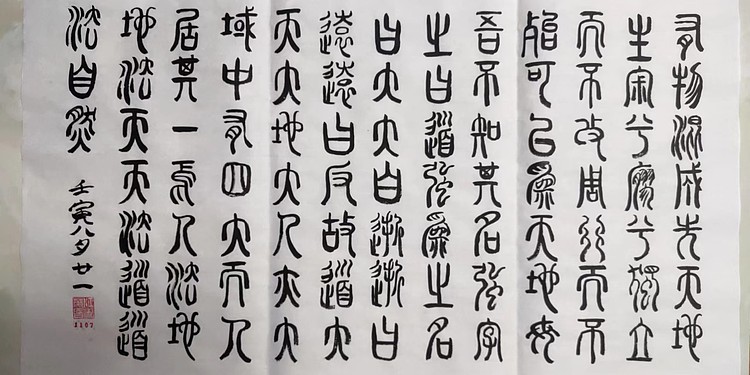 有物混成先天地
生寂兮廖兮獨立
而不改周行而不
殆可以為天地母
吾不知其名強字
之曰道強為之名
曰大大曰逝逝曰
遠遠曰反故道大
天大地大人亦大
域中有四大而人
居其一焉人法地
地法天天法道道
法自然
壬寅八月廿一
1107